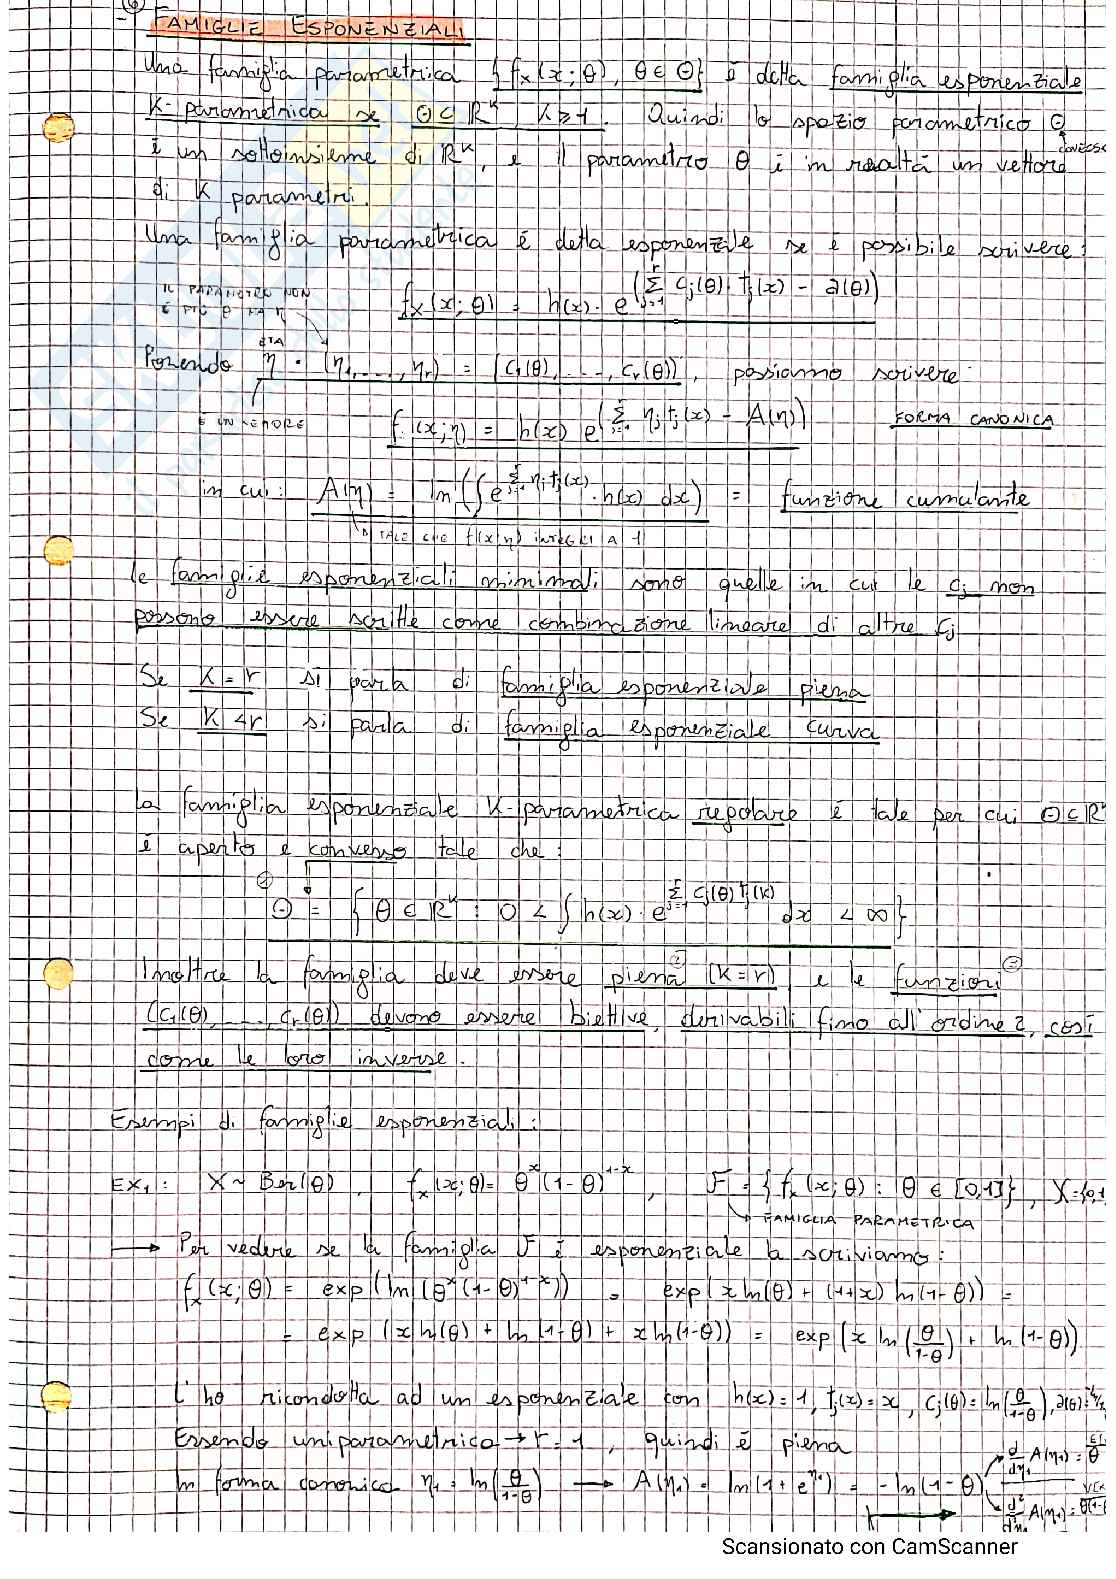 FAMIGLIE ESPONENZIALI
Una famiglia parametrica {fₓ(x;θ), θ∈Θ} è detta famiglia esponenziale
K-parametrica se Θ⊆ℝᴷ, K≥1. Quindi lo spazio parametrico Θ
è un sottoinsieme di ℝᴷ, e il parametro θ è in realtà un vettore
di K parametri.
Una famiglia parametrica è detta esponenzile se è possibile scrivere:
IL PARAMETRO NON
È PIÙ θ MA η
fₓ(x;θ) = h(x)· e^(Σ_{j=1}^{r} cj(θ)·tj(x) − a(θ))
ETA
Ponendo η = (η₁, ..., ηr) = (c₁(θ), ..., cr(θ)), possiamo scrivere:
È UN VETTORE
f(x;η) = h(x) e^(Σ_{j=1}^{r} ηj tj(x) − A(η))
FORMA CANONICA
in cui: A(η) = ln(∫e^{Σ_{j=1}^{r} ηj·tj(x)}·h(x) dx) = funzione cumulante
TALE CHE f(x;η) INTEGRI A 1
le famiglie esponenziali minimali sono quelle in cui le cj non
possono essere scritte come combinazione lineare di altre cj
Se K=r si parla di famiglia esponenziale piena
Se K<r si parla di famiglia esponenziale curva
La famiglia esponenziale K-parametrica regolare è tale per cui Θ⊆ℝᴷ
è aperto e convesso tale che:
① Θ = {θ∈ℝᴷ : 0 < ∫h(x)·e^{Σ_{j=1}^{r} cj(θ)tj(x)} dx < ∞}
Inoltre la famiglia deve essere piena ② (K=r) e le funzioni ③
(c₁(θ), ..., cr(θ)) devono essere biettive, derivabili fino all'ordine 2, così
come le loro inverse.
Esempi di famiglie esponenziali:
EX₁: X~Ber(θ), fₓ(x;θ)= θˣ(1-θ)¹⁻ˣ, F = {fₓ(x;θ) : θ∈[0,1]}, X={0,1
FAMIGLIA PARAMETRICA
→ Per vedere se la famiglia F è esponenziale la scriviamo:
fₓ(x;θ) = exp(ln(θˣ(1-θ)¹⁻ˣ)) = exp(x ln(θ) + (1+x) ln(1-θ)) =
= exp(x ln(θ) + ln(1-θ) + x ln(1-θ)) = exp(x ln(θ/(1-θ)) + ln(1-θ))
L'ho ricondotta ad un esponenziale con h(x)=1, tj(x)=x, cj(θ)=ln(θ/(1-θ)), a(θ)=
Essendo uniparametrico → r=1, quindi è piena
In forma canonica η₁ = ln(θ/(1-θ)) → A(η₁) = ln(1+e^{η₁}) = -ln(1-θ)
d/dη₁ A(η₁) = θ
d²/dη₁ A(η₁) = θ(1-
Scansionato con CamScanner